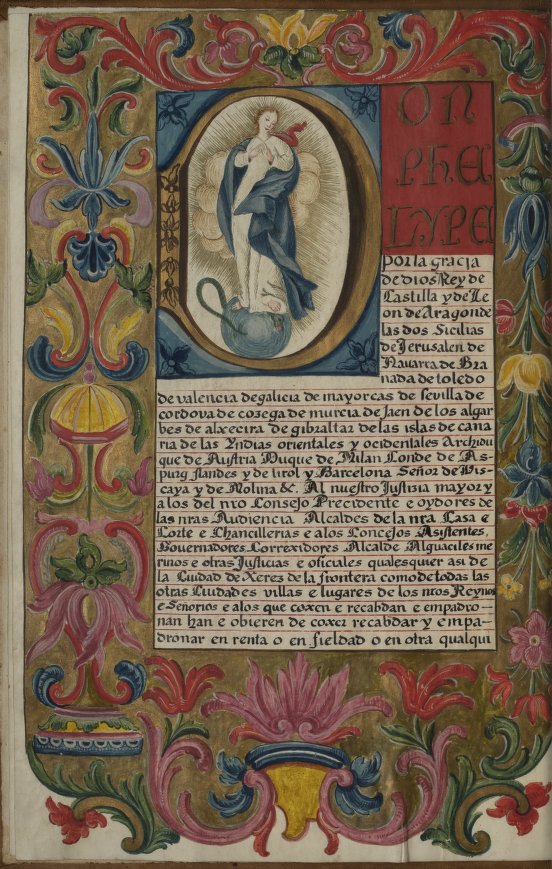 DON
PHE
LYPE
por la gracia
de dios Rey de
Castilla y de Le
on de Aragon de
las dos Sicilias
de Jerusalen de
Navarra de Gra
nada de toledo
de valencia de galicia de mayorcas de sevilla de
cordova de corega de murcia de Jaen de los algar
bes de alxecira de gibraltar de las islas de cana
ria de las Yndias orientales y ocidentales Archidu
que de Austria Duque de Milan Conde de As-
purg flandes y de tirol y Barcelona Señor de Vis-
caya y de Molina &. Al nuestro Justizia mayor y
a los del nro Consejo Precidente e oydores de
las nras Audiencia Alcaldes de la nra Casa e
Corte e Chancillerias e a los Concejos Asistentes,
Governadores Correxidores Alcalde Alguaciles me
rinos e otras Justicias e oficiales qualesquier asi de
la Ciudad de Xeres de la frontera como de todas las
otras Ciudades villas e lugares de los ntos Reynos
e Señorios e a los que coxen e recabdan e empadro-
nan han e obieren de coxer recabdar y empa-
dronar en renta o en fieldad o en otra qualqui